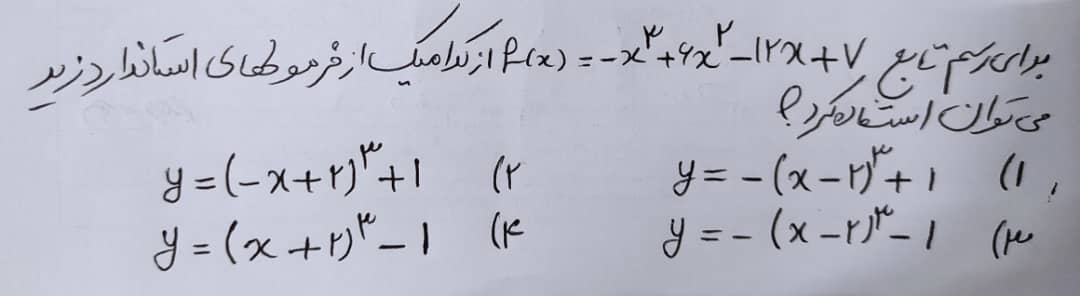 برای رسم تابع f(x) = -x³+۶x²-۱۲x+۷ از کدامیک از فرمولهای استاندارد زیر
می توان استفاده کرد؟
۱) y = -(x-۲)³+۱
۲) y = (-x+۲)³+۱
۳) y = -(x-۲)³-۱
۴) y = (x+۲)³-۱